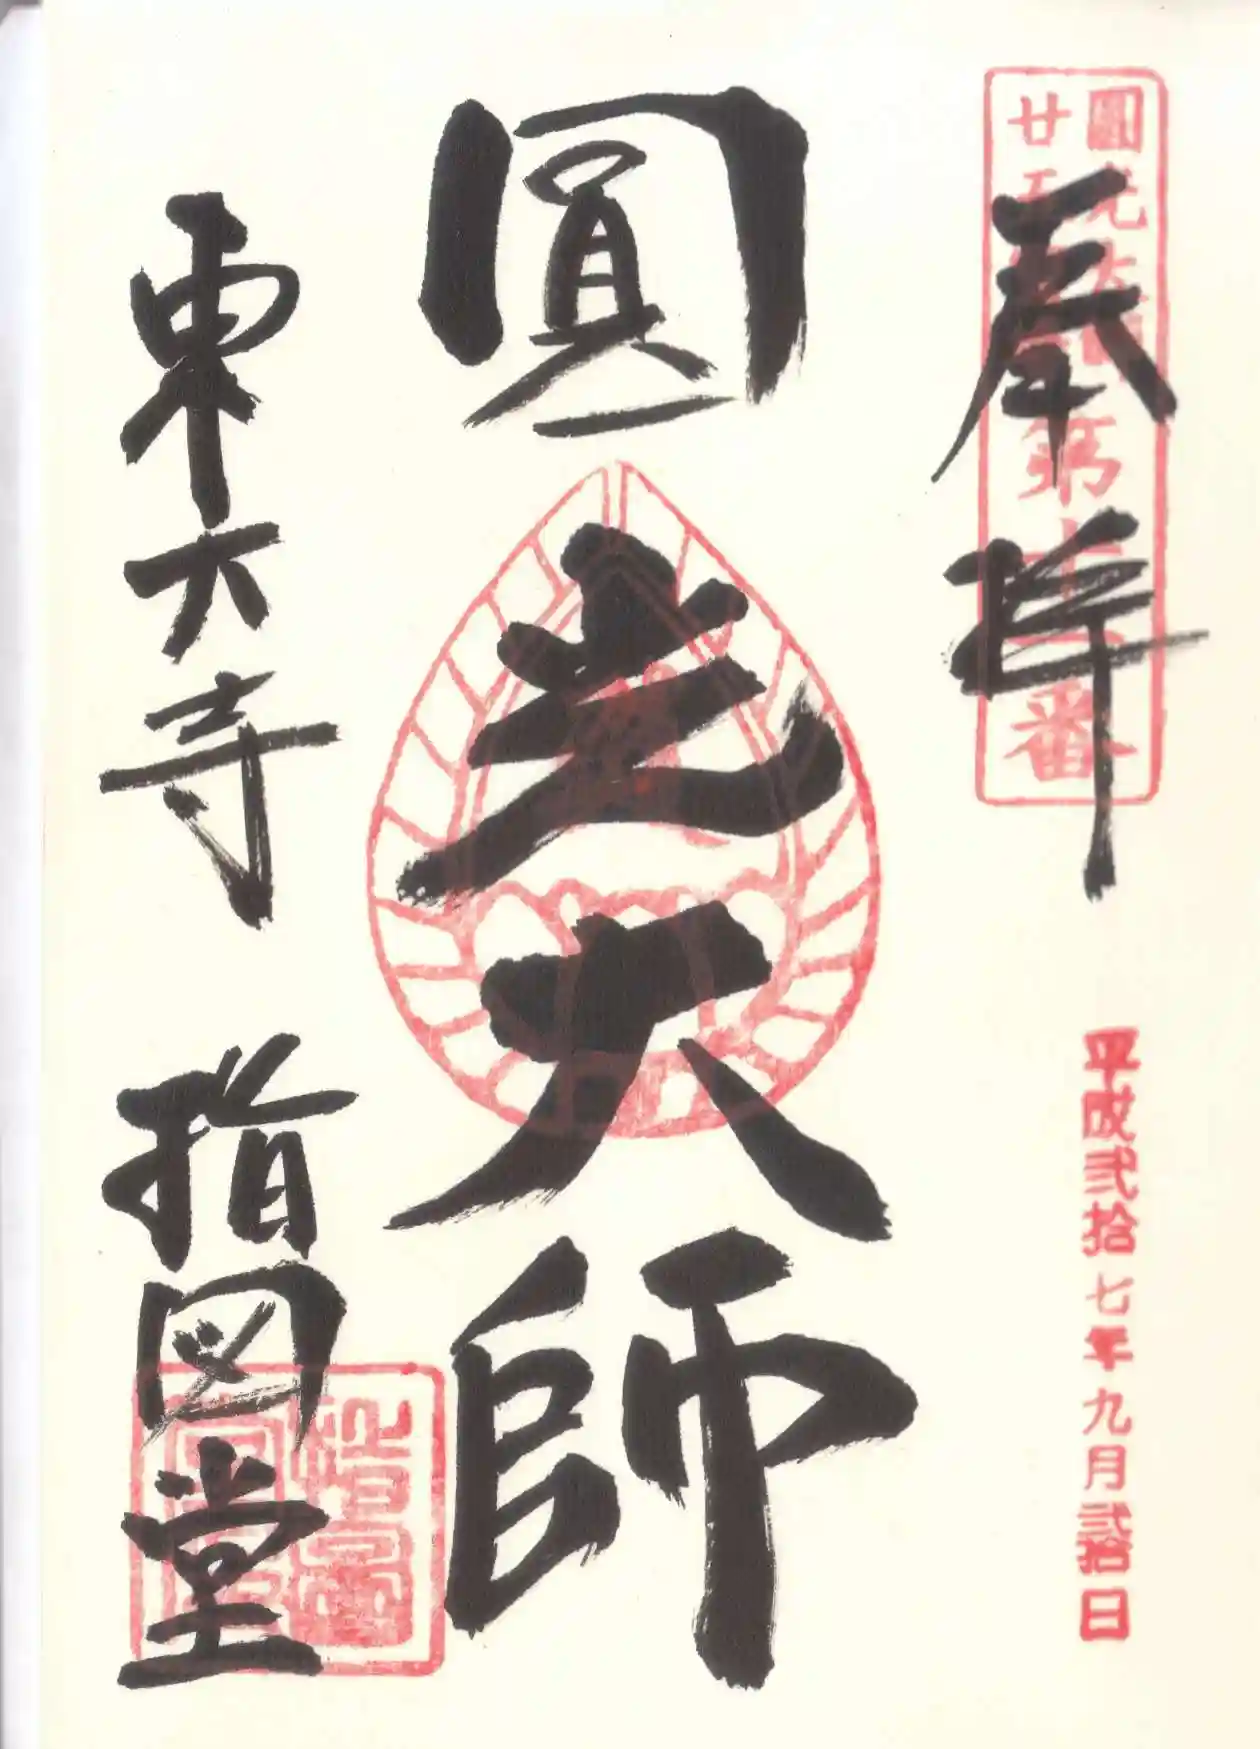 奉拝
圓光大師
廿五霊場第十一番
平成弐拾七年九月弐拾日
圓光大師
東大寺 指図堂